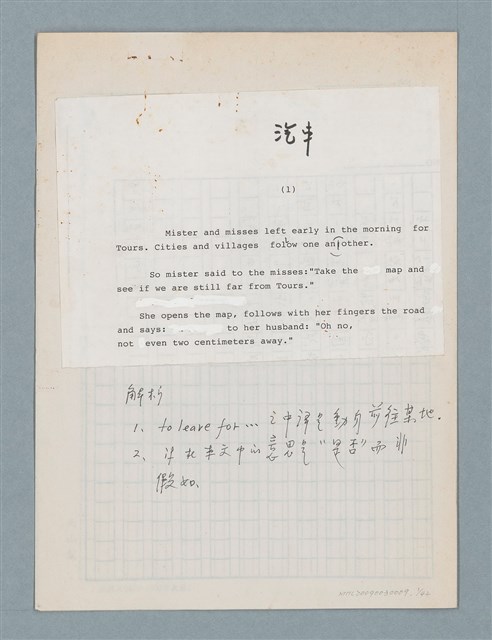 汽車
(1)
Mister and misses left early in the morning for
Tours. Cities and villages folow one another.
So mister said to the misses:"Take the map and
see if we are still far from Tours."
She opens the map, follows with her fingers the road
and says: to her husband: "Oh no,
not even two centimeters away."
解析
1、to leave for… 之中譯是動身前往某地.
2、if 在本文中的意思是"是否"而非
假如.